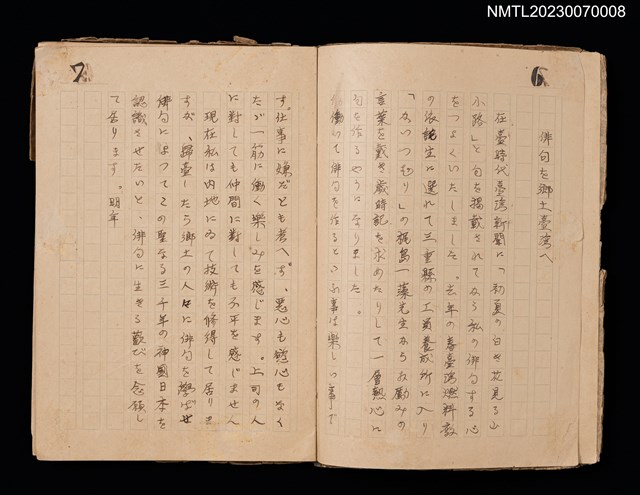 NMTL20230070008
6
俳句を郷土臺湾へ
在臺時代臺湾新聞に「初夏の白き花見る山
小路」と句を掲載されてから私の俳句する心
をつよくいたしました。去年の春臺湾燃料敷
の依託生に選れて三重縣の工員養成所に入り
「かいつむり」の梶島一藻先生からお勵みの
言葉を戴き歳時記を求めたりして一層熱心に
句を作るやうになりました。
働いて俳句を作るといふ事は樂しい事で
7
す。仕事に嫌だとも考へず。悪心も慾心もなく
たゞ一筋に働く樂しみを感じます。上司の人
に對しても仲間に對しても不平を感じません
現在私は内地にゐて技術を修得して居りま
すが、歸臺したら郷土の人々に俳句を學ばせ
俳句によつてこの聖なる三千年の神國日本を
認識させたいと、俳句に生きる歡びを念願し
て居ります。 明年